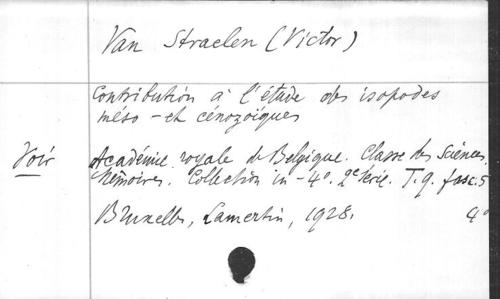 Van Straelen (Victor)
Contribution à l'étude des isopodes
méso - et cénozoïques
Voir Académie royale de Belgique. Classe des Sciences.
Mémoires. Collection in-4º. 2e série. T. 9. fasc. 5
Bruxelles, Lamertin, 1928. 4º